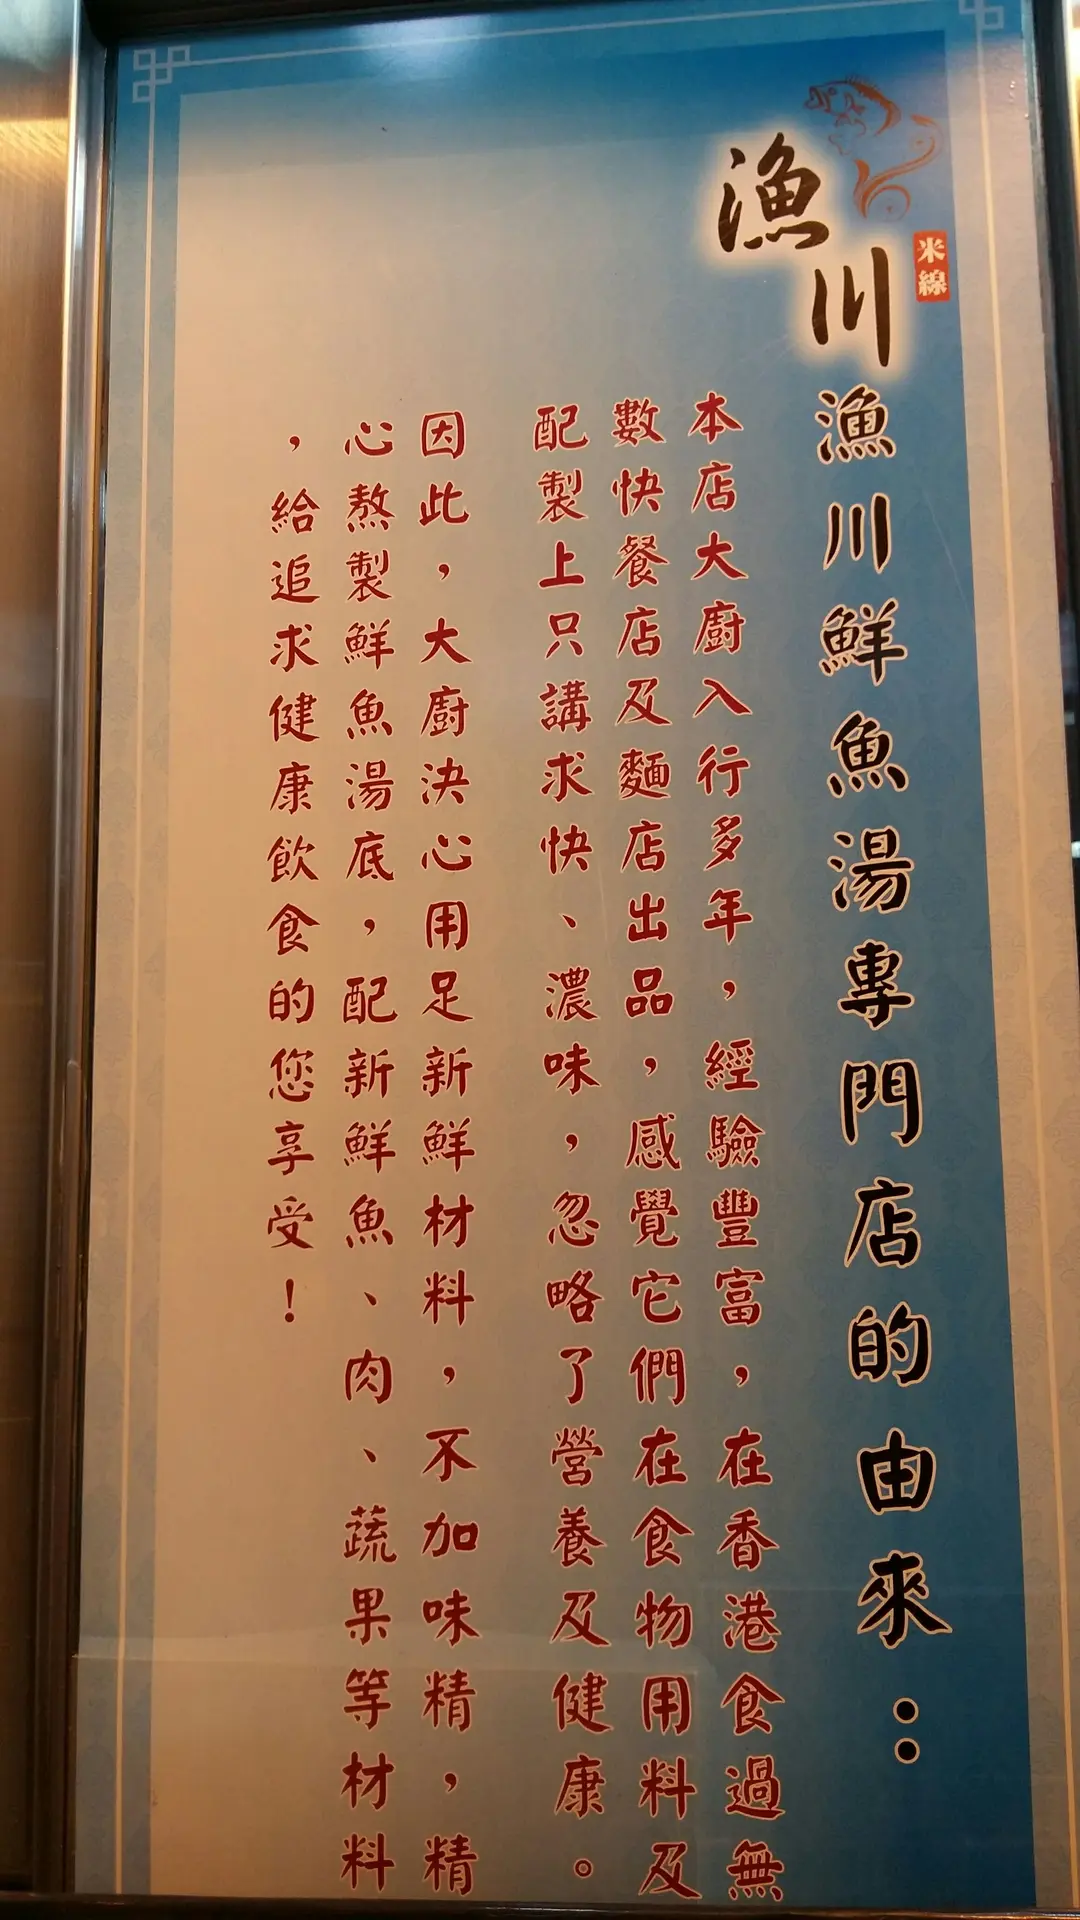 漁川
米線
漁川鮮魚湯專門店的由來：
本店大廚入行多年，經驗豐富，在香港食過無
數快餐店及麵店出品，感覺它們在食物用料及
配製上只講求快、濃味，忽略了營養及健康。
因此，大廚決心用足新鮮材料，不加味精，精
心熬製鮮魚湯底，配新鮮魚、肉、蔬果等材料
，給追求健康飲食的您享受！